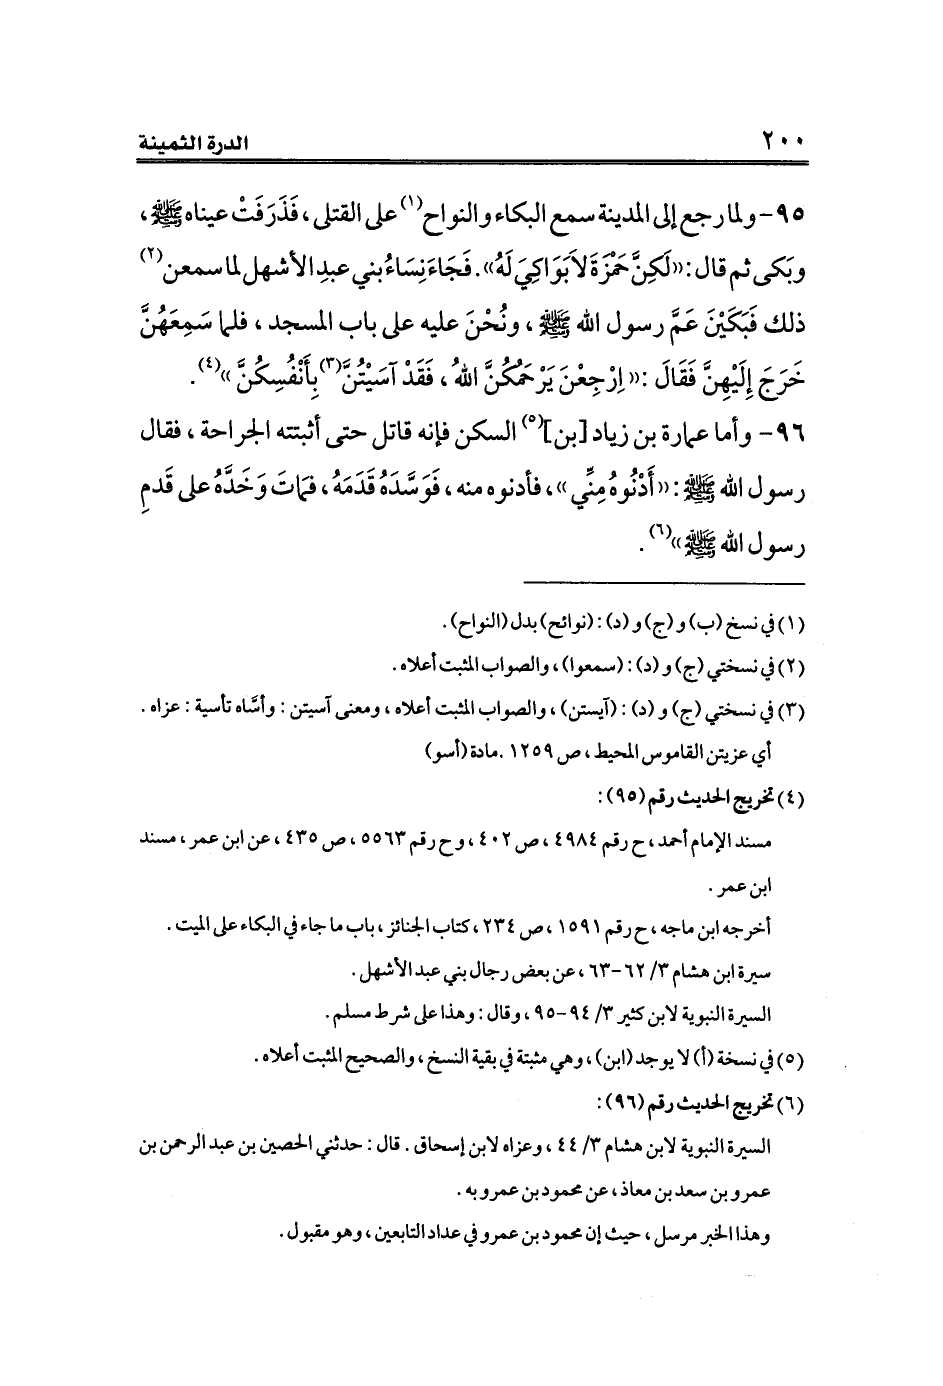 ٢٠٠ الدرة الثمينة
٩٥- ولما رجع إلى المدينة سمع البكاء والنواح(١) على القتلى ، فَذَرَفَتْ عيناه ﷺ ،
وبَكى ثم قال : «لَكِنَّ حَمْزَةَ لاَ بَوَاكِيَ لَهُ». فَجَاءَ نِسَاءُ بني عبدِ الأشهل لما سمعن(٢)
ذلك فَبَكَيْنَ عَمَّ رسول الله ﷺ ، ونُحْنَ عليه على باب المسجد ، فلما سَمِعَهُنَّ
خَرَجَ إِلَيْهِنَّ فَقَالَ : «اِرْجِعْنَ يَرْحَمُكُنَّ اللهُ ، فَقَدْ آسَيْتُنَّ(٣) بِأَنْفُسِكُنَّ»(٤).
٩٦- وأما عمارة بن زياد [بن](٥) السكن فإنه قاتل حتى أثبتته الجراحة ، فقال
رسول الله ﷺ : «أَدْنُوهُ مِنِّي» ، فأدنوه منه ، فَوَسَّدَهُ قَدَمَهُ ، فَمَاتَ وَخَدَّهُ على قَدمِ
رسول الله ﷺ»(٦).
(١) في نسخ (ب) و (ج) و (د) : (نوائح) بدل (النواح).
(٢) في نسختي (ج) و (د) : (سمعوا) ، والصواب المثبت أعلاه.
(٣) في نسختي (ج) و (د) : (آيستن) ، والصواب المثبت أعلاه ، ومعنى آسيتن : وأسَّاه تأسية : عزاه .
أي عزيتن القاموس المحيط ، ص ١٢٥٩ .مادة (أسو)
(٤) تخريج الحديث رقم (٩٥) :
مسند الإمام أحمد ، ح رقم ٤٩٨٤ ، ص ٤٠٢ ، و ح رقم ٥٥٦٣ ، ص ٤٣٥ ، عن ابن عمر ، مسند
ابن عمر .
أخرجه ابن ماجه ، ح رقم ١٥٩١ ، ص ٢٣٤ ، كتاب الجنائز ، باب ما جاء في البكاء على الميت .
سيرة ابن هشام ٣/ ٦٢-٦٣ ، عن بعض رجال بني عبد الأشهل .
السيرة النبوية لابن كثير ٣/ ٩٤-٩٥ ، وقال : وهذا على شرط مسلم.
(٥) في نسخة (أ) لا يوجد (ابن) ، وهي مثبتة في بقية النسخ ، والصحيح المثبت أعلاه .
(٦) تخريج الحديث رقم (٩٦) :
السيرة النبوية لابن هشام ٣/ ٤٤ ، وعزاه لابن إسحاق . قال : حدثني الحصين بن عبد الرحمن بن
عمرو بن سعد بن معاذ ، عن محمود بن عمرو به .
وهذا الخبر مرسل ، حيث إن محمود بن عمرو في عداد التابعين ، وهو مقبول .